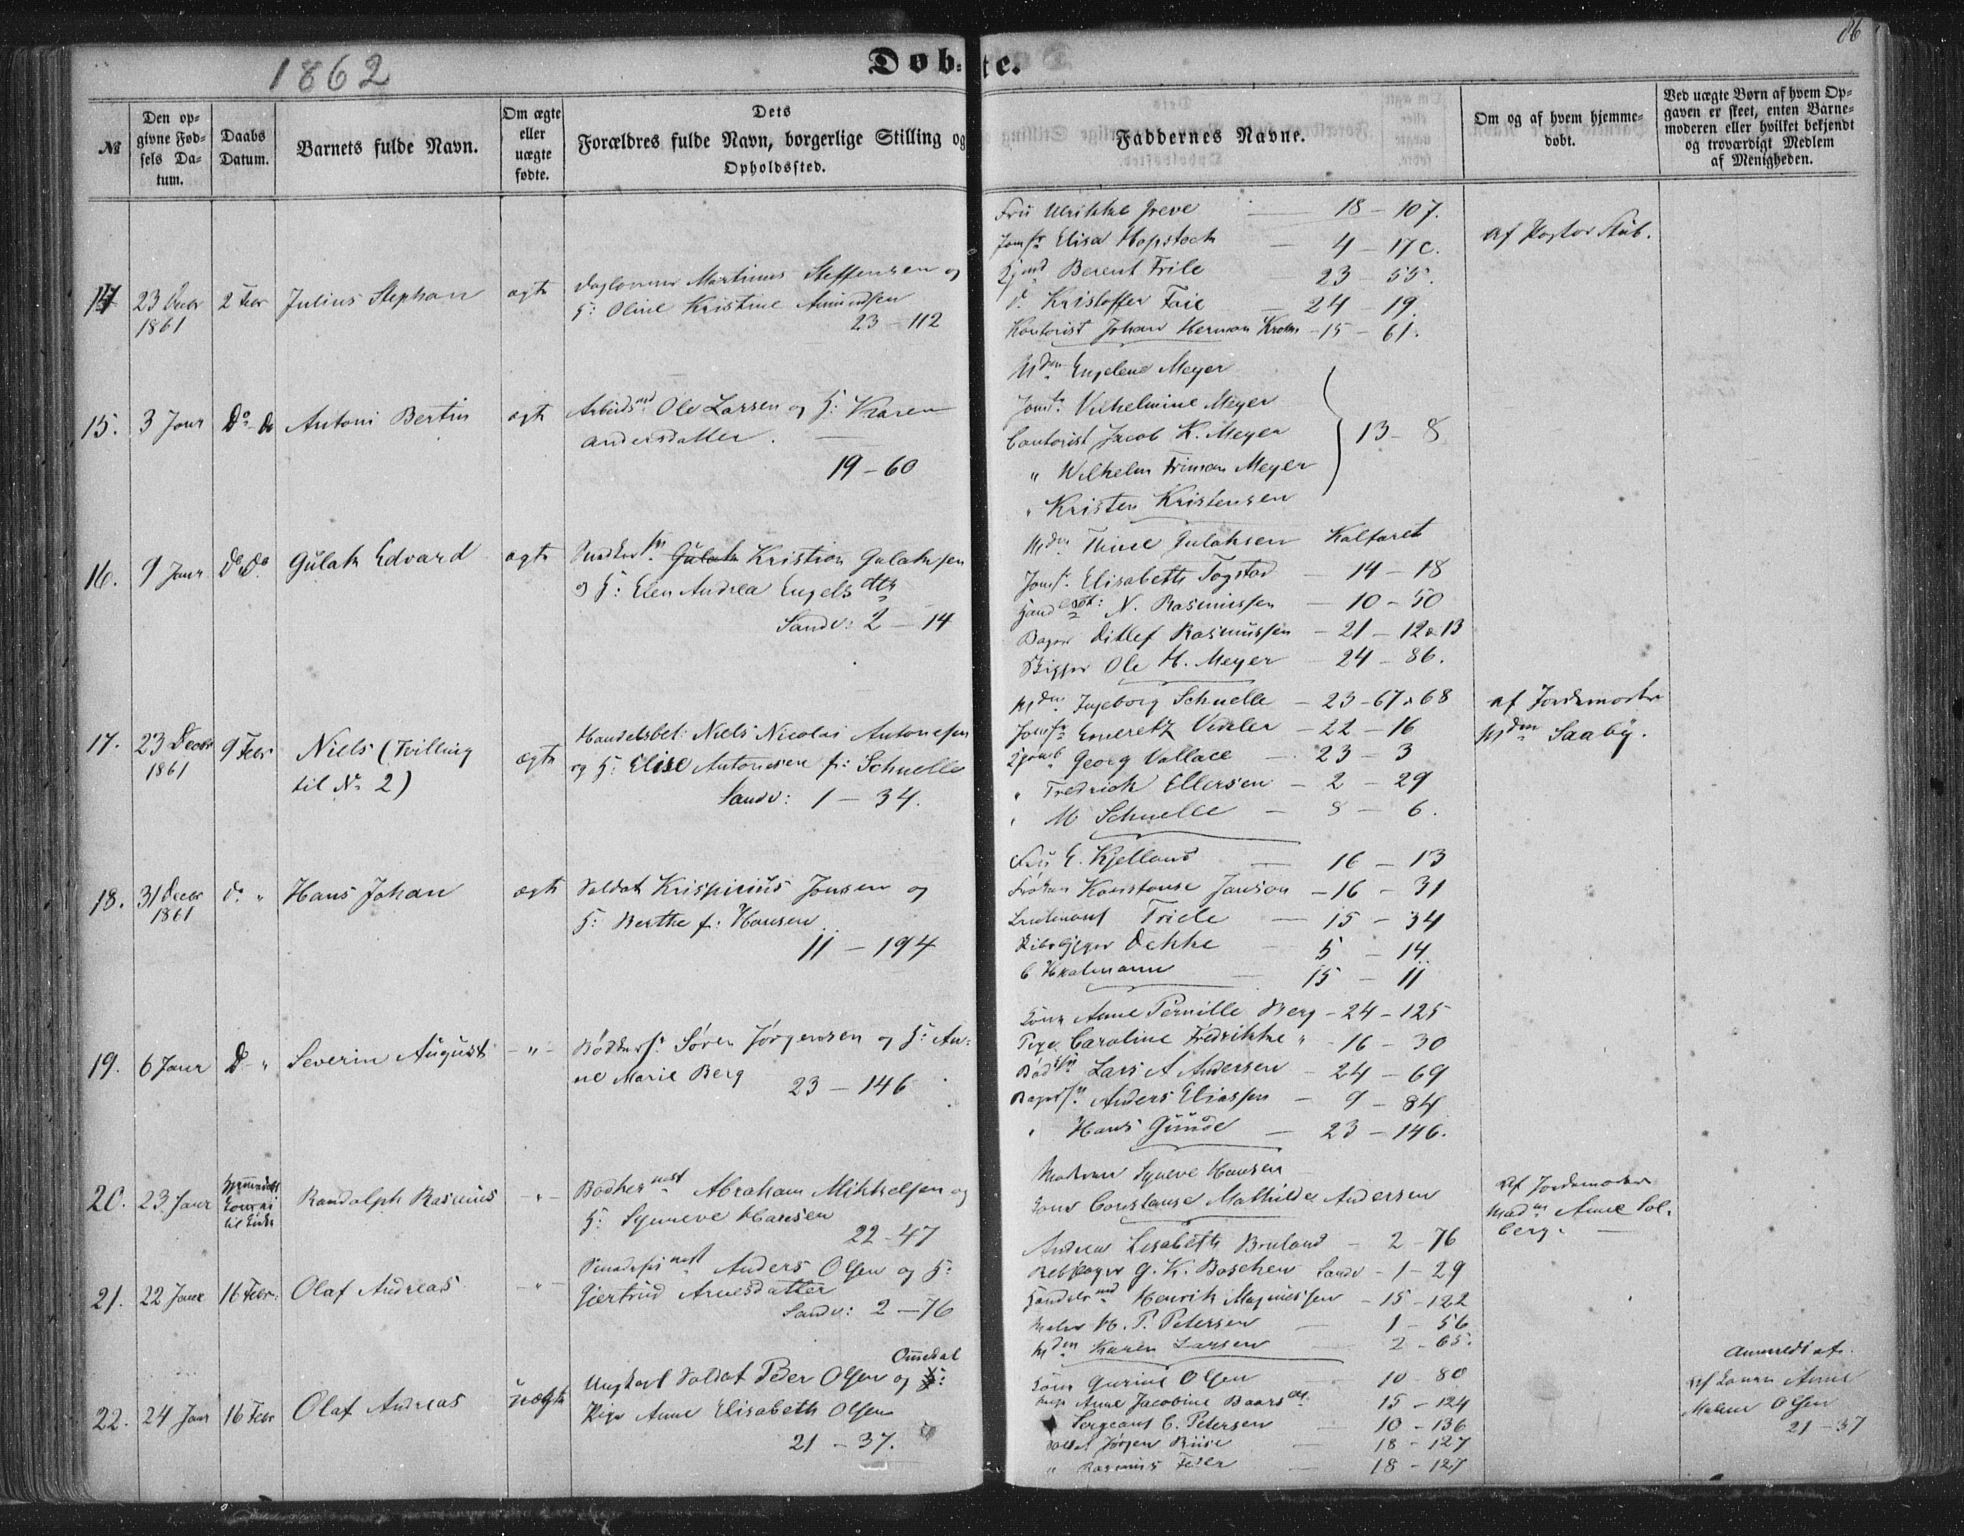 1862
Døb-te.
86
№
Den op-
givne Fød-
sels Da-
tum.
Daabs
Datum.
Barnets fulde Navn.
Om ægte
eller
uægte
fødte.
Dets
Forældres fulde Navn, borgerlige Stilling og
Opholdssted.
Faddernes Navne.
Om og af hvem hjemme-
døbt.
Ved uægte Børn af hvem Op-
gaven er skeet, enten Barne-
moderen eller hvilket bekjendt
og troværdigt Medlem
af Menigheden.
14
23
1861
2 Febr
Julius Stephan
ægte
Martinus Steffensen og
H: Oline Kristine Amundsen
23 - 112
Fru Ulrikke Greve 18 - 107.
Jomfr Elisa Hopstock 4 - 17c.
Berent Friele 23 - 55.
do Kristoffer Faie 24 - 19.
Kontorist Johan Herman Krohn 15 - 61.
af Pastor Stub.
15.
3 Janr
Do do
Antoni Bertin
ægte
Arbeidsmd Ole Larsen og H: Karen
Andersdatter.
19 - 60
Mden Engelene Meyer
Jomfr. Vilhelmine Meyer
Contorist Jacob K. Meyer 13 - 8
" Wilhelm Friman Meyer
" Kristen Kristensen
16.
9 Janr
Do Do
Gulak Edvard
ægte
Snedkersv. Gulak Kristian Gulaksen
og H: Elen Andrea Engelsdtr
Sandv: 2 - 14
Mden Thine Gulaksen Kalfaret
Jomfr. Elisabeth Togstad 14 - 18
N. Rasmussen - 10 - 50
Bager Ditlef Rasmussen - 21 - 12 & 13
Skipper Ole H. Meyer - 24 - 86.
17.
23 Decbr
1861
9 Febr
Niels (Tvilling
til No 2)
ægte
Handelsbet: Niels Nicolai Antonesen
og H: Elise Antonesen f: Schnelle
Sandv: 1 - 34.
Mden Ingeborg Schnelle - 23 - 67 & 68
Jomfr Emeretz Vedeler - 22 - 16
Georg Vallace - 23 - 3
" Fredrick Ellersen - 2 - 29
" M Schnelle - 8 - 6.
af Jordemoder
Mden Saaby.
18.
31 Decbr
1861
do "
Hans Johan
ægte
Soldat Krispinius Jonsen og
H: Berthe f: Hansen
11 - 194
Fru E. Kjelland 16 - 13
Frøken Konstanse Janson - 16 - 31
Friele 15 - 34
Dekke 5 - 14
15 - 11
19.
6 Janr
Do "
Severin August
- " -
Bødkersv. Søren Jørgensen og H: An-
ne Marie Berg
23 - 146
Kone Anne Pernille Berg - 24 - 125
Pige Caroline Fredrikke " - 16 - 30
Bødsv Lars A Andersen - 24 - 69
Bagersv. Anders Eliassen - 9 - 84
" Hans Gunde 23 - 146.
20.
23 Janr
Randolph Rasmus
- " -
Bødkermest Abraham Mikkelsen og
H: Synneve Hansen
22 - 47
Madam Syneve Hansen
Kone Constanse Mathilde Andersen
af Jordemoder
Madm Anne Sol-
berg.
21.
22 Janr
16 Febr:
Olaf Andreas
- " -
Anders Olsen og H:
Giertrud Arnesdatter
Sandv: 2 - 76
Andrea Lisabeth Bruland - 2 - 76
G. K. Boschen Sandv - 1 - 29
Henrik Magnussen - 15 - 122
Maler H. P. Petersen 1 - 56
Mden Karen Larsen 2 - 65.
22.
24 Janr
16 Febr
Olaf Andreas
uægte
Omedal
Ungkarl Soldat Peder Olsen og
Pige Anne Elisabeth Olsen
21 - 37.
Kone Gurine Olsen 10 - 80
Pige Anne Jacobine Baars 15 - 124
Sergeant C. Petersen 10 - 136
Soldat Jørgen Riise 18 - 127
" Rasmus Feder 18 - 127
Anmeldt af
af Konen Anne
Malene Olsen
21 - 37